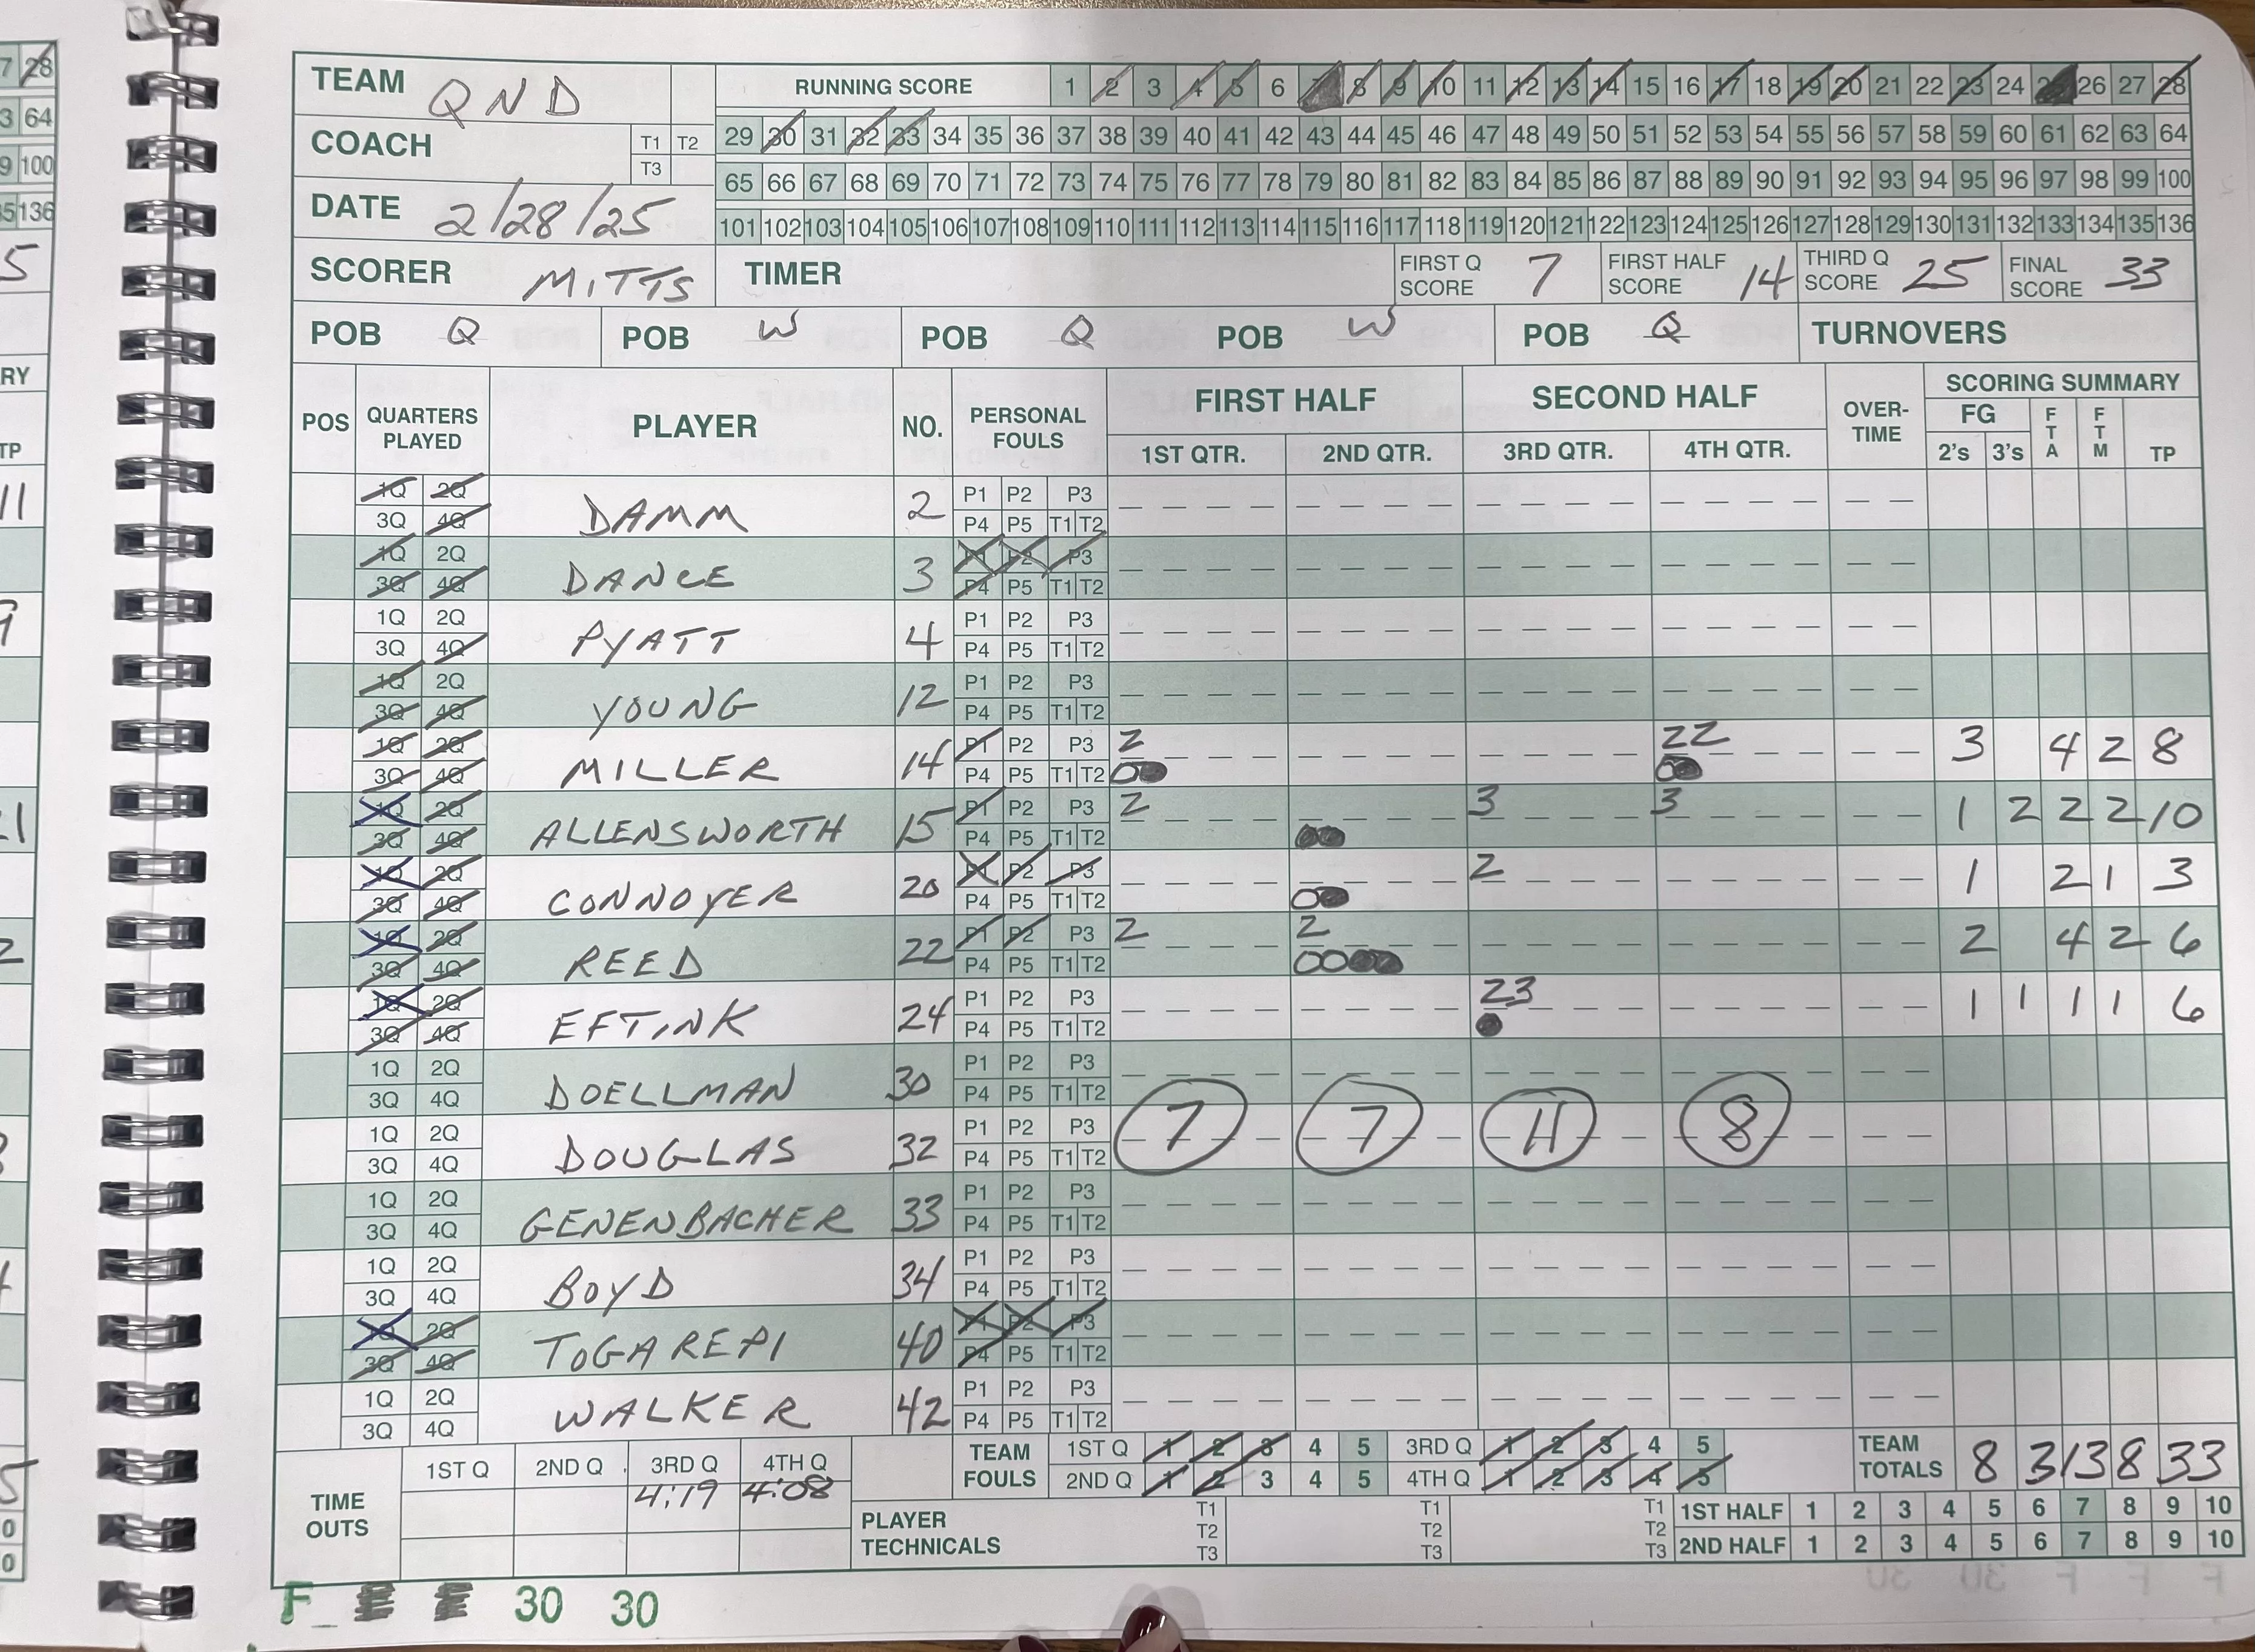 TEAM QND
RUNNING SCORE 1 2 3 4 5 6 8 9 10 11 12 13 14 15 16 17 18 19 20 21 22 23 24 26 27 28
COACH T1 T2 T3
29 30 31 32 33 34 35 36 37 38 39 40 41 42 43 44 45 46 47 48 49 50 51 52 53 54 55 56 57 58 59 60 61 62 63 64
65 66 67 68 69 70 71 72 73 74 75 76 77 78 79 80 81 82 83 84 85 86 87 88 89 90 91 92 93 94 95 96 97 98 99 100
DATE 2/28/25
101 102 103 104 105 106 107 108 109 110 111 112 113 114 115 116 117 118 119 120 121 122 123 124 125 126 127 128 129 130 131 132 133 134 135 136
SCORER MITTS TIMER FIRST Q SCORE 7 FIRST HALF SCORE 14 THIRD Q SCORE 25 FINAL SCORE 33
POB Q POB W POB Q POB W POB Q TURNOVERS
POS QUARTERS PLAYED PLAYER NO. PERSONAL FOULS FIRST HALF SECOND HALF OVER-TIME SCORING SUMMARY
1ST QTR. 2ND QTR. 3RD QTR. 4TH QTR. FG 2's 3's FTA FTM TP
1Q 2Q DAMM 2 P1 P2 P3
3Q 4Q P4 P5 T1 T2
1Q 2Q DANCE 3 P1 P2 P3
3Q 4Q P4 P5 T1 T2
1Q 2Q PYATT 4 P1 P2 P3
3Q 4Q P4 P5 T1 T2
1Q 2Q YOUNG 12 P1 P2 P3
3Q 4Q P4 P5 T1 T2
1Q 2Q MILLER 14 P1 P2 P3 2 22 3 4 2 8
3Q 4Q P4 P5 T1 T2
1Q 2Q ALLENSWORTH 15 P1 P2 P3 2 3 3 1 2 2 2 10
3Q 4Q P4 P5 T1 T2
1Q 2Q CONNOYER 20 P1 P2 P3 2 1 2 1 3
3Q 4Q P4 P5 T1 T2
1Q 2Q REED 22 P1 P2 P3 2 2 2 4 2 6
3Q 4Q P4 P5 T1 T2
1Q 2Q EFTINK 24 P1 P2 P3 23 1 1 1 1 6
3Q 4Q P4 P5 T1 T2
1Q 2Q DOELLMAN 30 P1 P2 P3
3Q 4Q P4 P5 T1 T2
1Q 2Q DOUGLAS 32 P1 P2 P3 7 7 11 8
3Q 4Q P4 P5 T1 T2
1Q 2Q GENENBACHER 33 P1 P2 P3
3Q 4Q P4 P5 T1 T2
1Q 2Q BOYD 34 P1 P2 P3
3Q 4Q P4 P5 T1 T2
1Q 2Q TOGAREPI 40 P1 P2 P3
3Q 4Q P4 P5 T1 T2
1Q 2Q WALKER 42 P1 P2 P3
3Q 4Q P4 P5 T1 T2
TIME OUTS 1ST Q 2ND Q 3RD Q 4TH Q
4:19 4:08
TEAM FOULS 1ST Q 1 2 3 4 5 3RD Q 1 2 3 4 5
2ND Q 1 2 3 4 5 4TH Q 1 2 3 4 5
TEAM TOTALS 8 3 13 8 33
PLAYER TECHNICALS T1 T2 T3 T1 T2 T3 T1 T2 T3
1ST HALF 1 2 3 4 5 6 7 8 9 10
2ND HALF 1 2 3 4 5 6 7 8 9 10
F 30 30